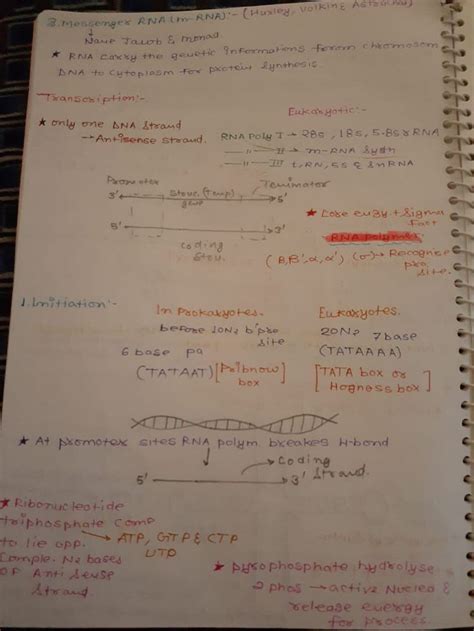 3. Messenger RNA (m-RNA):- (Huxley, Volkin & Astrachan)
Name Jacob & Monad.
★ RNA carry the genetic informations form chromosom
DNA to cytoplasm for protein synthesis.
Transcription:-
★ only one DNA strand
→ Antisense strand.
Eukaryotic:-
RNA Poly I → 28s, 18s, 5.8s rRNA
II → m-RNA
III → tRNA, 5s & SnRNA
Promoter
Terminator
3'
5'
5'
3'
Coding
★ Core enzy + Sigma
Fact
RNA polymer
(β, β', α, α') (σ) → Recognise
pro
site.
1. Initiation:-
In Prokaryotes.
before 10 N2 b'pro
site
6 base pa
(TATAAT) [Pribnow
box]
Eukaryotes.
20N2 7 base
(TATAAAA)
[TATA box or
Hogness box]
★ At promoter sites RNA polym. breakes H-bond
5'
3'
→ Coding
Strand.
★ Ribonucleotide
triphosphate comp
→ ATP, GTP & CTP
UTP
to lie opp.
Comple. N2 bases
OF Anti Sense
Strand.
★ pyrophosphate hydrolyse
2 phos → active Nucleo &
release energy
for process.